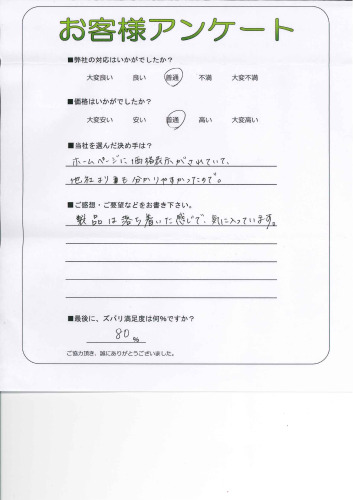 お客様アンケート
■弊社の対応はいかがでしたか？
大変良い 良い 普通 不満 大変不満
■価格はいかがでしたか？
大変安い 安い 普通 高い 大変高い
■当社を選んだ決め手は？
ホームページに価格表示がされていて、
他社より重も分かりやすかったので。
■ご感想・ご要望などをお書き下さい。
製品は落ち着いた感じで、気に入っています。
■最後に、ズバリ満足度は何%ですか？
80%
ご協力頂き、誠にありがとうございました。